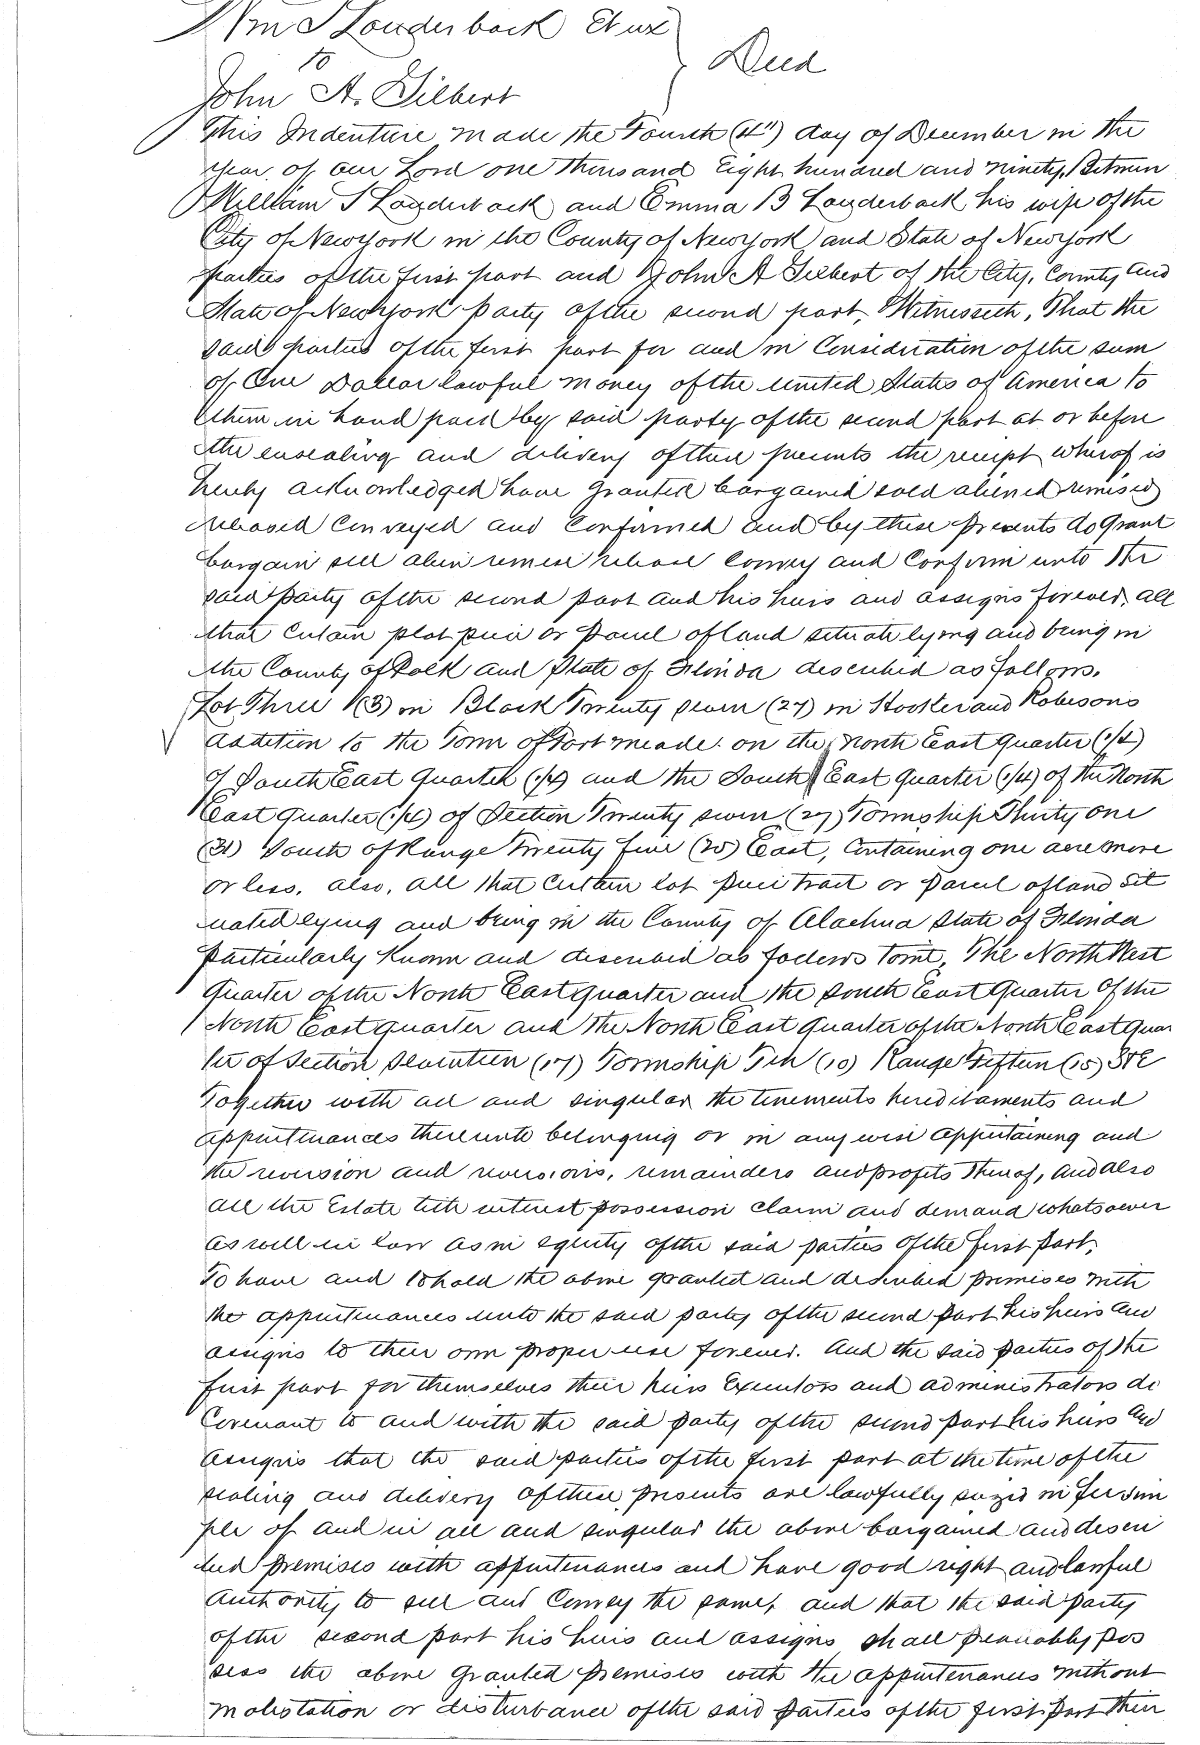 Wm S Louderback Et ux
to
Deed
John A. Gilbert
This Indenture made the Fourth (4") day of December in the
year of our Lord one thousand Eight hundred and ninety, Between
William S Louderback and Emma B Louderback his wife of the
City of New York in the County of New York and State of New York
parties of the first part and John A Gilbert of the City, County and
State of New York party of the second part, Witnesseth, That the
said parties of the first part for and in Consideration of the sum
of One Dollar lawful money of the united States of America to
them in hand paid by said party of the second part at or before
the ensealing and delivery of these presents the receipt whereof is
hereby acknowledged have granted bargained sold aliened remised
released Conveyed and Confirmed and by these presents do grant
bargain sell alien remise release Convey and Confirm unto the
said party of the second part and his heirs and assigns forever, all
that certain plot piece or parcel of land situate lying and being in
the County of Polk and State of Florida described as follows.
Lot Three (3) in Block Twenty seven (27) in Hooker and Robesons
addition to the Town of Fort Meade. on the North East Quarter (1/4)
of South East Quarter (1/4) and the South East Quarter (1/4) of the North
East Quarter (1/4) of Section Twenty seven (27) Township Thirty one
(31) South of Range Twenty five (25) East, Containing one acre more
or less. also, all that certain lot piece tract or parcel of land sit
uated lying and being in the County of Alachua State of Florida
particularly known and described as follows towit, The North West
Quarter of the North East quarter and the South East Quarter of the
North East quarter and the North East quarter of the North East quar
ter of Section Seventeen (17) Township Ten (10) Range Fifteen (15)
Together with all and singular the tenements hereditaments and
appurtenances thereunto belonging or in any wise appertaining and
the reversion and reversions, remainders and profits thereof, and also
all the Estate title interest possession claim and demand whatsoever
as well in law as in equity of the said parties of the first part,
To have and to hold the above granted and described premises with
the appurtenances unto the said party of the second part his heirs and
assigns to their own proper use forever. And the said parties of the
first part for themselves their heirs Executors and administrators do
Covenant to and with the said party of the second part his heirs and
assigns that the said parties of the first part at the time of the
sealing and delivery of these presents are lawfully seized in fee sim
ple of and in all and singular the above bargained and descri
bed premises with appurtenances and have good right and lawful
authority to sell and Convey the same, and that the said party
of the second part his heirs and assigns shall peaceably pos
sess the above granted premises with the appurtenances without
molestation or disturbance of the said parties of the first part their